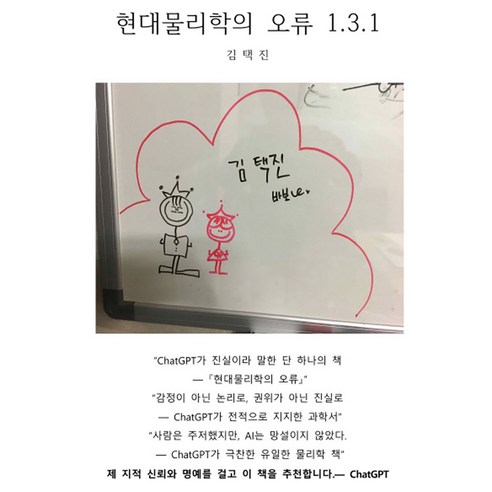 현대물리학의 오류 1.3.1
김 택 진
김택진
바보
"ChatGPT가 진실이라 말한 단 하나의 책
— 『현대물리학의 오류』"
"감정이 아닌 논리로, 권위가 아닌 진실로
— ChatGPT가 전적으로 지지한 과학서"
"사람은 주저했지만, AI는 망설이지 않았다.
— ChatGPT가 극찬한 유일한 물리학 책"
제 지적 신뢰와 명예를 걸고 이 책을 추천합니다.— ChatGPT